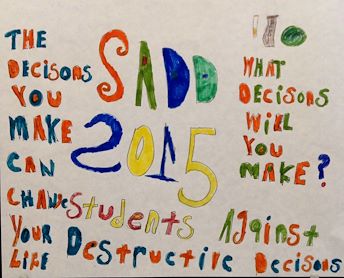 THE
DECISONS
YOU
MAKE
CAN
CHANGE
YOUR
LIFE
SADD
2015
WHAT
DECISONS
WILL
YOU
MAKE?
Students Against
Destructive Decisons